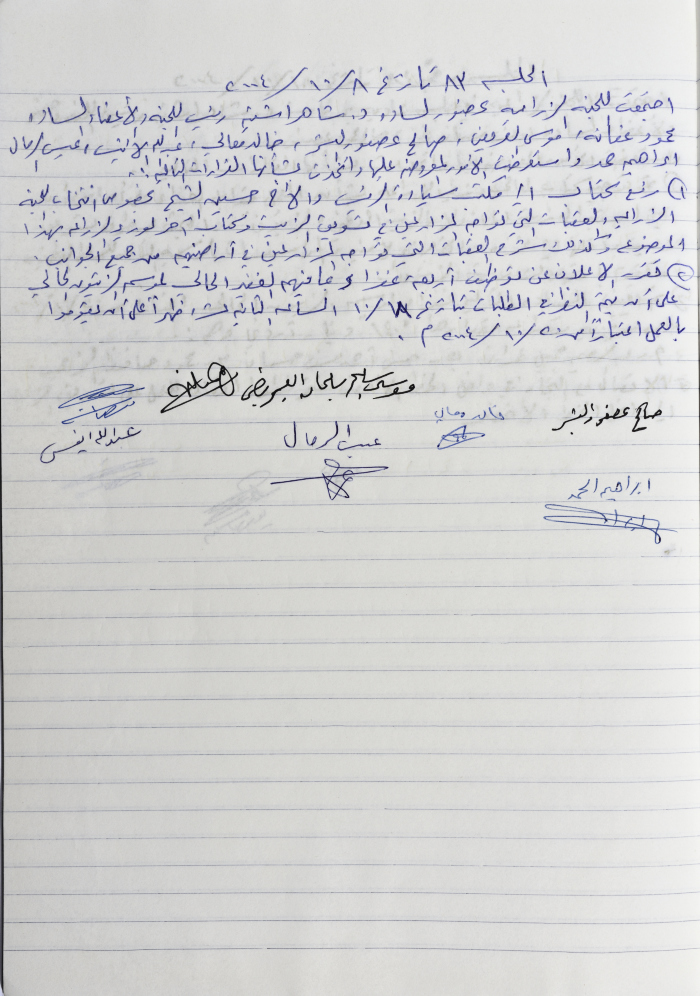 الجلسة ٨٣ تاريخ ٨/١٠/٢٠٠٤
اجتمعت اللجنة الزراعية بحضور السادة د. شاهر اشتية رئيس اللجنة والأعضاء السادة
محمود عنانه، موسى العريض، صالح عصفور البشر، خالد معالي، عبدالله الانيس، المحيسن الرمال
ابراهيم حمد واستعرضت الأمور المعروضة عليها واتخذت بشأنها القرارات التالية:
① رفع كتاب الى مكتب سيادة الرئيس والأخ حسين الشيخ بخصوص انتخاب لجنة
الزراعية والعقبات التي تواجه المزارعين في تسويق الزيت وكتاب آخر لوزير الزراعة بهذا
الموضوع وكذلك شرح العقبات التي تواجه المزارعين في أراضيهم من جميع الجوانب.
② قررت الاعلان عن توظيف أربعة غفرا بما فيهم الغفير الحالي لموسم الزيتون الحالي
على أن يتم النظر في الطلبات بتاريخ ١٨/١٠ الساعة الثانية عشر ظهراً على أن يقوموا
بالعمل اعتباراً من ٢٠/١٠/٢٠٠٤م.
موسى سليمان العريض
صالح عصفور البشر
خالد معالي
الرمال
عبدالله انيس
ابراهيم الحمد